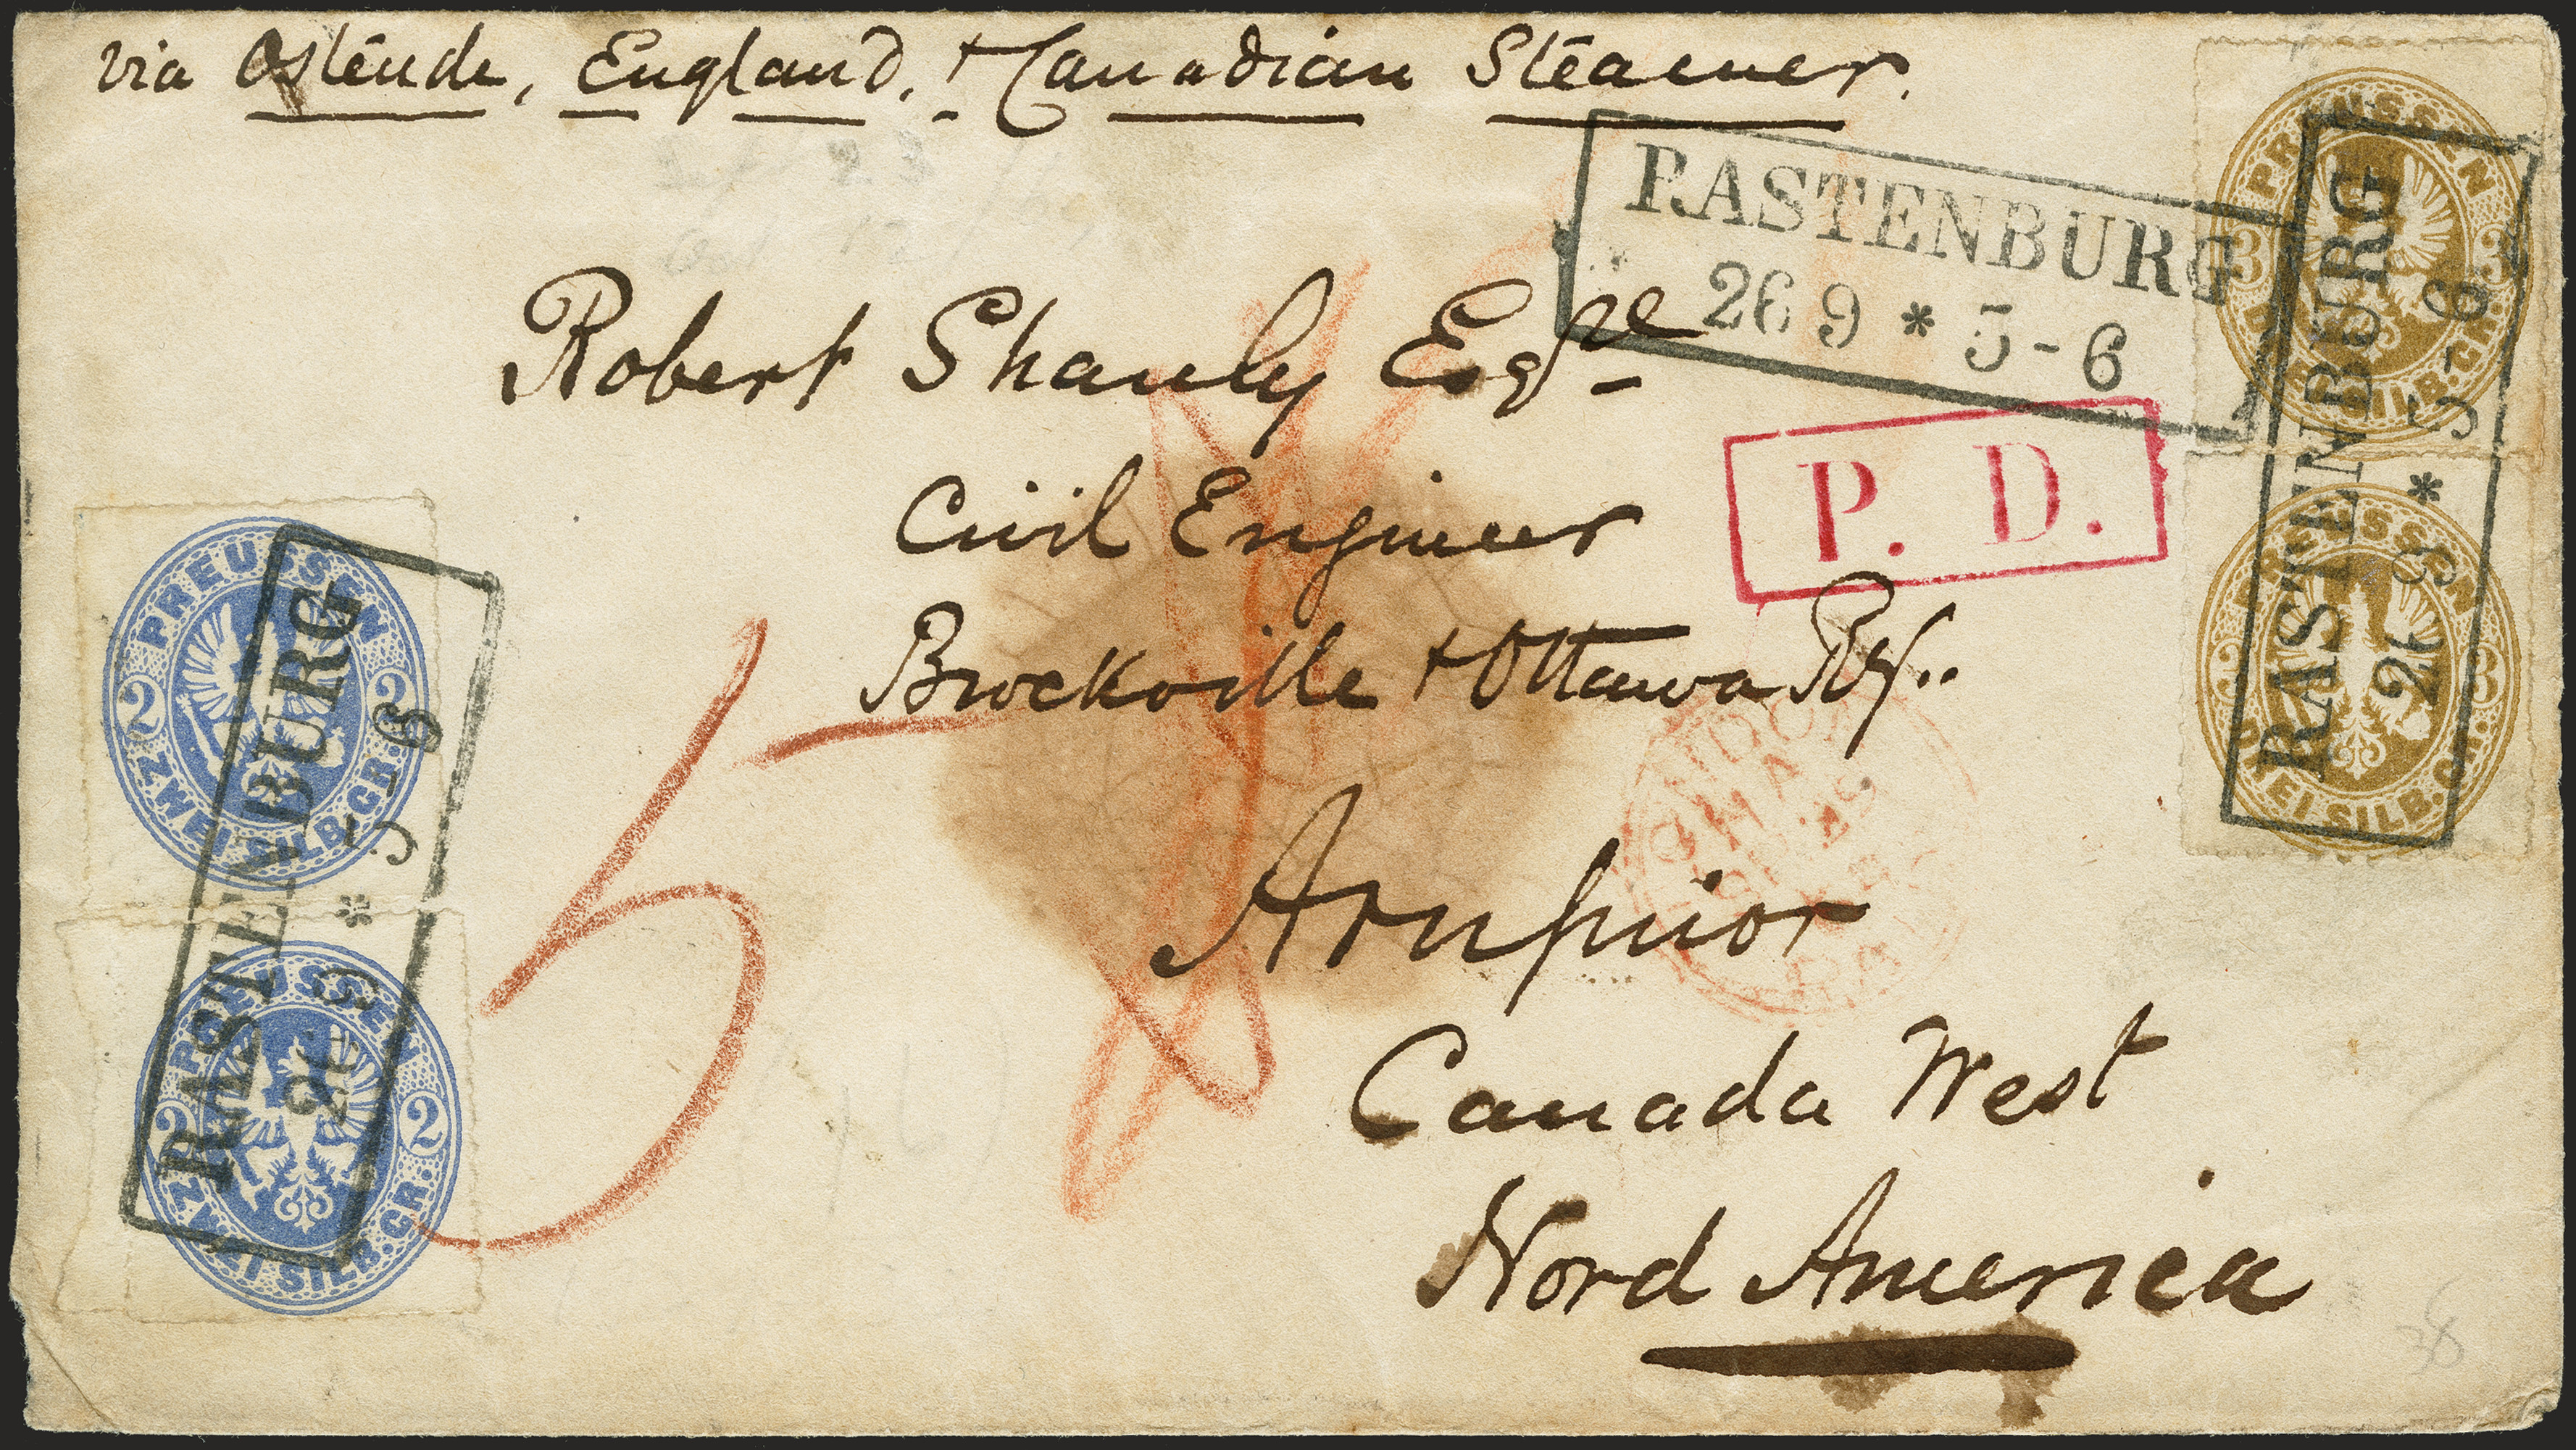 via Ostende, England, + Canadian Steamer.
RASTENBURG
26 9 * 5-6
Robert Shanly Esqre
P. D.
Civil Engineer
Brockville + Ottawa Ry..
Arnprior
Canada West
Nord America
PREUSSEN
3 3
DREI SILB.GR.
PREUSSEN
3 3
DREI SILB.GR.
RASTENBURG
26 9 * 5-6
PREUSSEN
2 2
ZWEI SILB.GR.
PREUSSEN
2 2
ZWEI SILB.GR.
RASTENBURG
26 9 * 5-6
LONDON
PAID
5